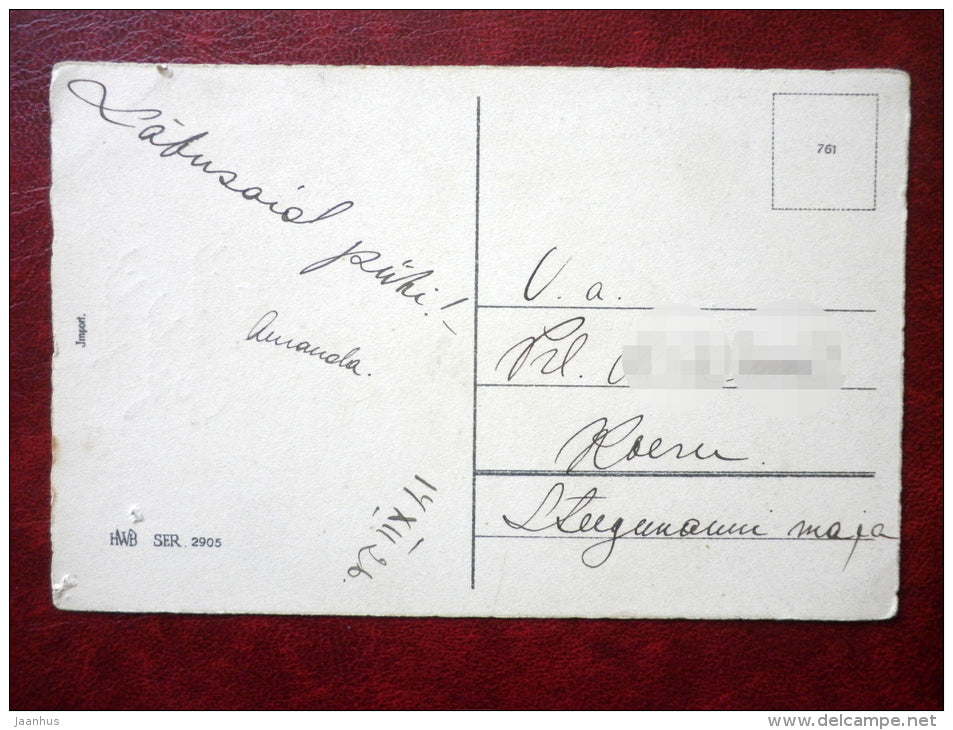 Lõbusaid pühi!
Amanda.
Jmport.
HWB SER. 2905
17 XII 26.
761
V. a.
Prl.
Koeru.
maja
jaanhus
www.delcampe.net